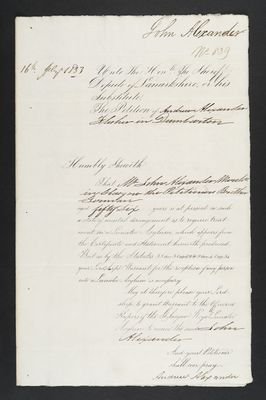 John Alexander
No 839
16th July 1833 Unto The Honble The Sheriff
Depute of Lanarkshire, & his
Substitute.
The Petition of Andrew Alexander
in Dumbarton
Humbly Sheweth
That Mr John Alexander
in Glasgow the Petitioners Brother
aged
fifty six years is at present in such
a state mental derangement as to require treat
ment in a Lunatic Asylum, which appears from
the Certificate and Statement herewith produced.
But as by the Statutes
your Lordships Warrant for the reception of any person
into a Lunatic Asylum is necessary
May it therefore please your Lord
ship to grant Warrant to the Officers &
Keepers of the Glasgow Royal Lunatic
Asylum to receive the said John
Alexander
And your Petitioner
shall ever pray.
Andrew Alexander